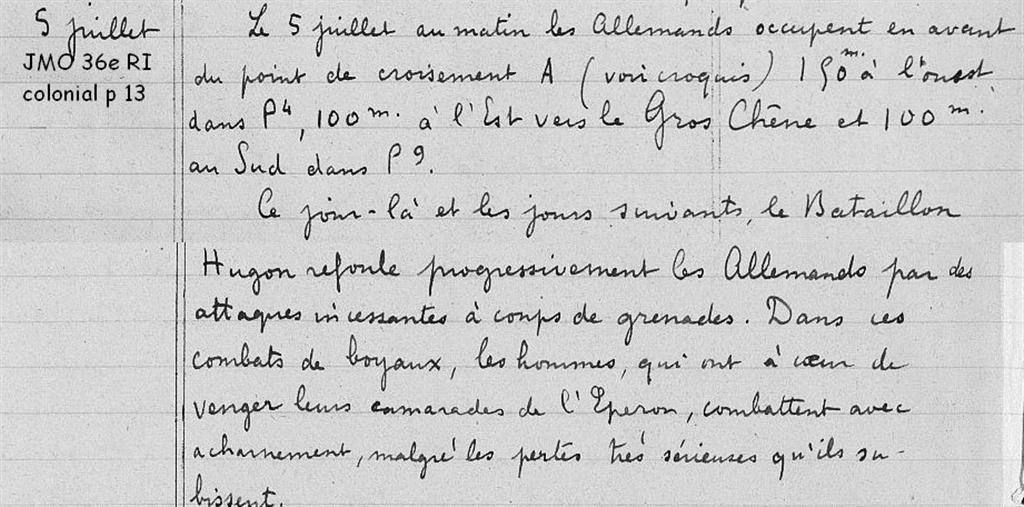 5 juillet
JMO 36e RI
colonial p 13
Le 5 juillet au matin les Allemands occupent en avant
du point de croisement A (voir croquis) 150 m. à l'ouest
dans P4, 100 m. à l'Est vers le Gros Chêne et 100 m.
au Sud dans P9.
Ce jour-là et les jours suivants, le Bataillon
Hugon refoule progressivement les Allemands par des
attaques incessantes à coups de grenades. Dans ces
combats de boyaux, les hommes, qui ont à cœur de
venger leurs camarades de l'Eperon, combattent avec
acharnement, malgré les pertes très sérieuses qu'ils su-
bissent.